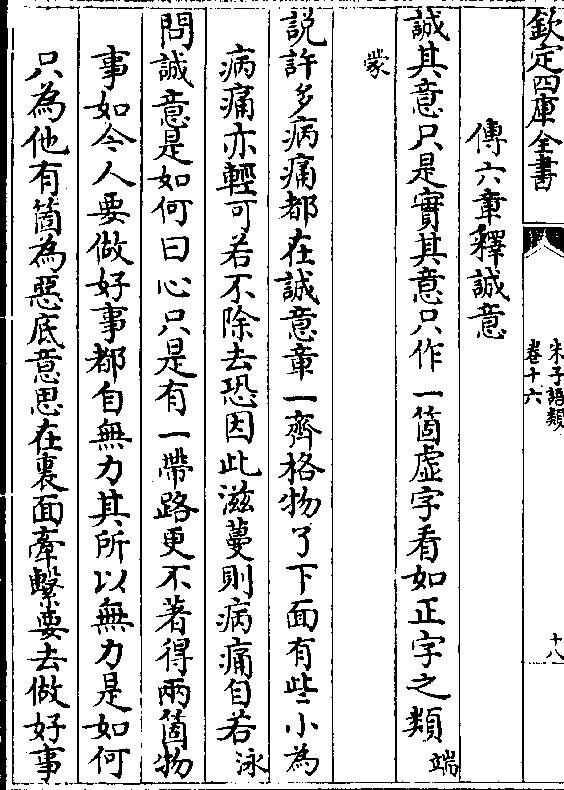 欽定四庫全書
朱子語類
卷十六
十八
傳六章釋誠意
誠其意只是實其意只作一箇虚字看如正字之類端
蒙
說許多病痛都在誠意章一齊格物了下面有些小為
病痛亦輕可若不除去恐因此滋蔓則病痛自若泳
問誠意是如何曰心只是有一帶路更不著得兩箇物
事如今人要做好事都自無力其所以無力是如何
只為他有箇為惡底意思在裏面牽繫要去做好事